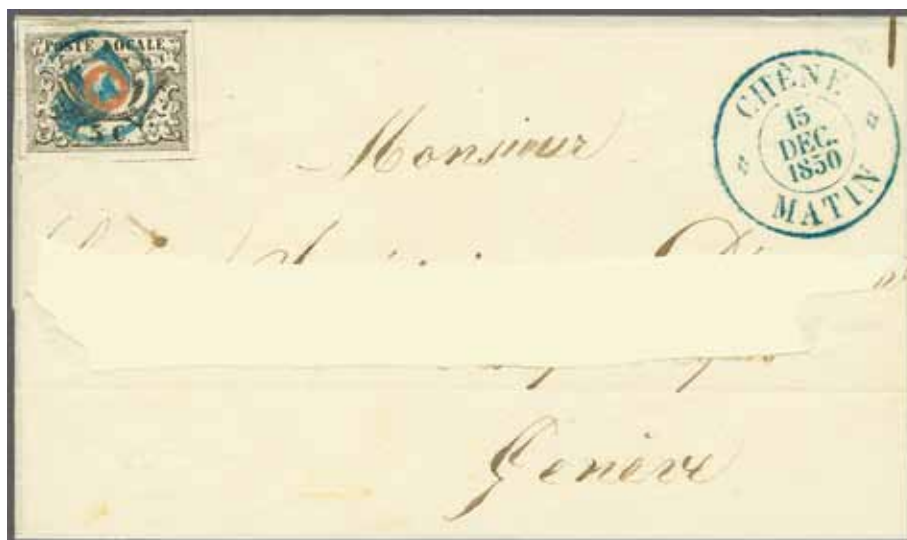 POSTE LOCALE
5 C
CHÊNE
15
DEC.
1850
MATIN
Monsieur
Genève